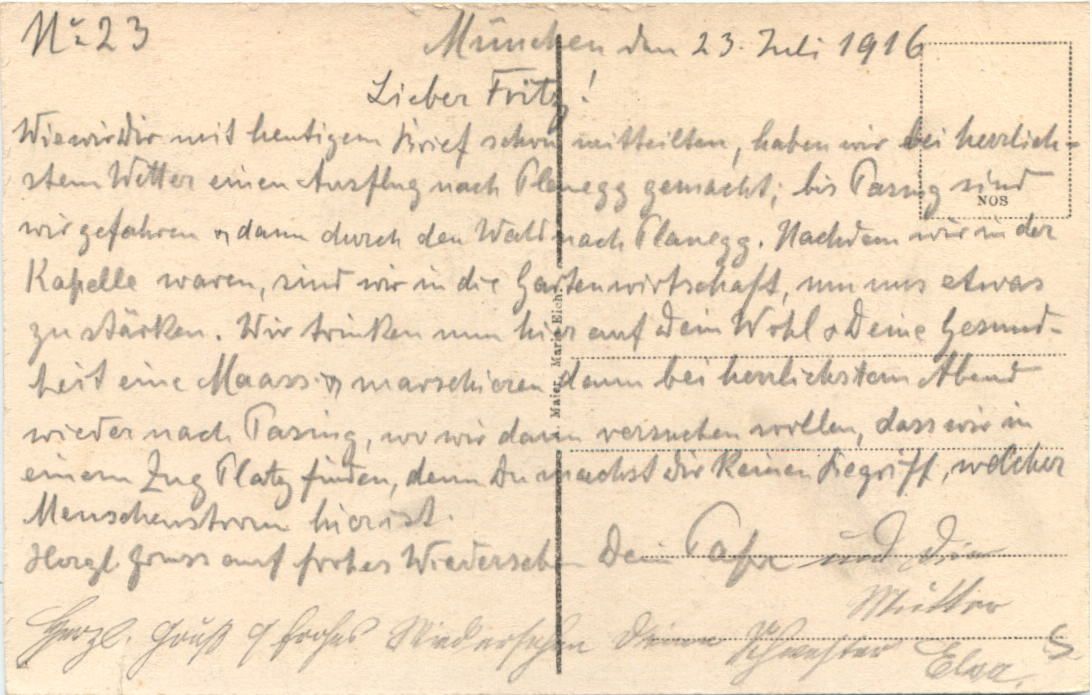 No 23
München den 23. Juli 1916
Lieber Fritz!
Wie wir Dir mit heutigem Brief schon mitteilten, haben wir bei herrlich-
stem Wetter einen Ausflug nach Planegg gemacht; bis Pasing sind
NOS
wir gefahren & dann durch den Wald nach Planegg. Nachdem wir in der
Kapelle waren, sind wir in die Gartenwirtschaft, um uns etwas
zu stärken. Wir trinken nun hier auf Dein Wohl & Deine Gesund-
heit eine Maass & marschieren dann bei herrlichstem Abend
wieder nach Pasing, wo wir dann versuchen wollen, dass wir in
einem Zug Platz finden, denn Du machst Dir keinen Begriff, welcher
Menschenstrom hier ist.
Herzl. Gruss auf frohes Wiedersehn Dein Papa und Die
Mutter
Herzl. Gruß & frohes Wiedersehen Deine Schwester Elsa.
Maier, Maria-Eich.